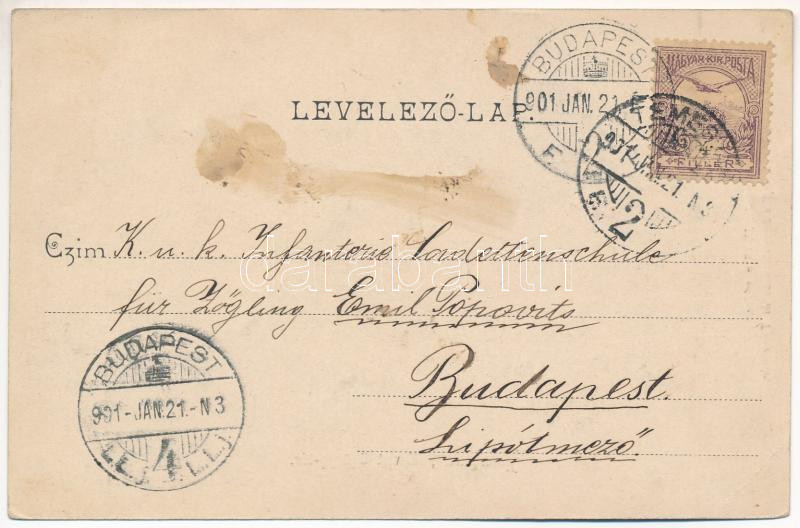 BUDAPEST
901 JAN. 21
F.
MAGYAR KIR. POSTA
FILLÉR
TEMES
901 JAN. 21. N 3
2
LEVELEZŐ-LAP.
Czim K. u. k. Infanterie Cadettenschule
für Zögling Emil Popovits
Budapest.
Lipótmező.
BUDAPEST
901-JAN.21.-N3
4
darabanth